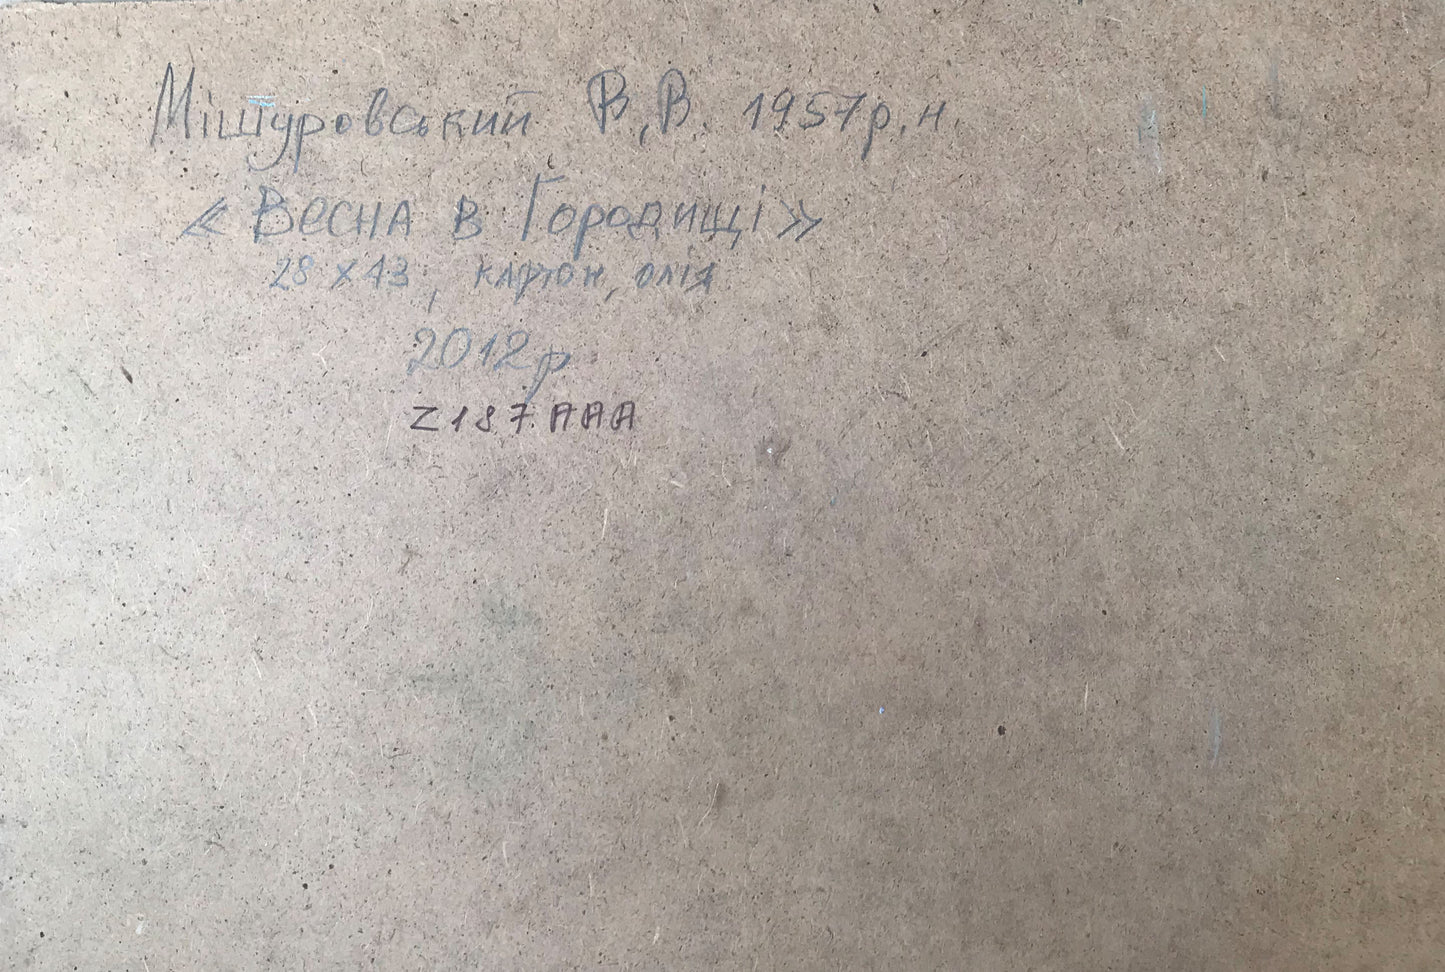 Мішуровський В.В. 1957р.н.
«Весна в Городищі»
28 х 43, картон, олія
2012р
Z187.AAA